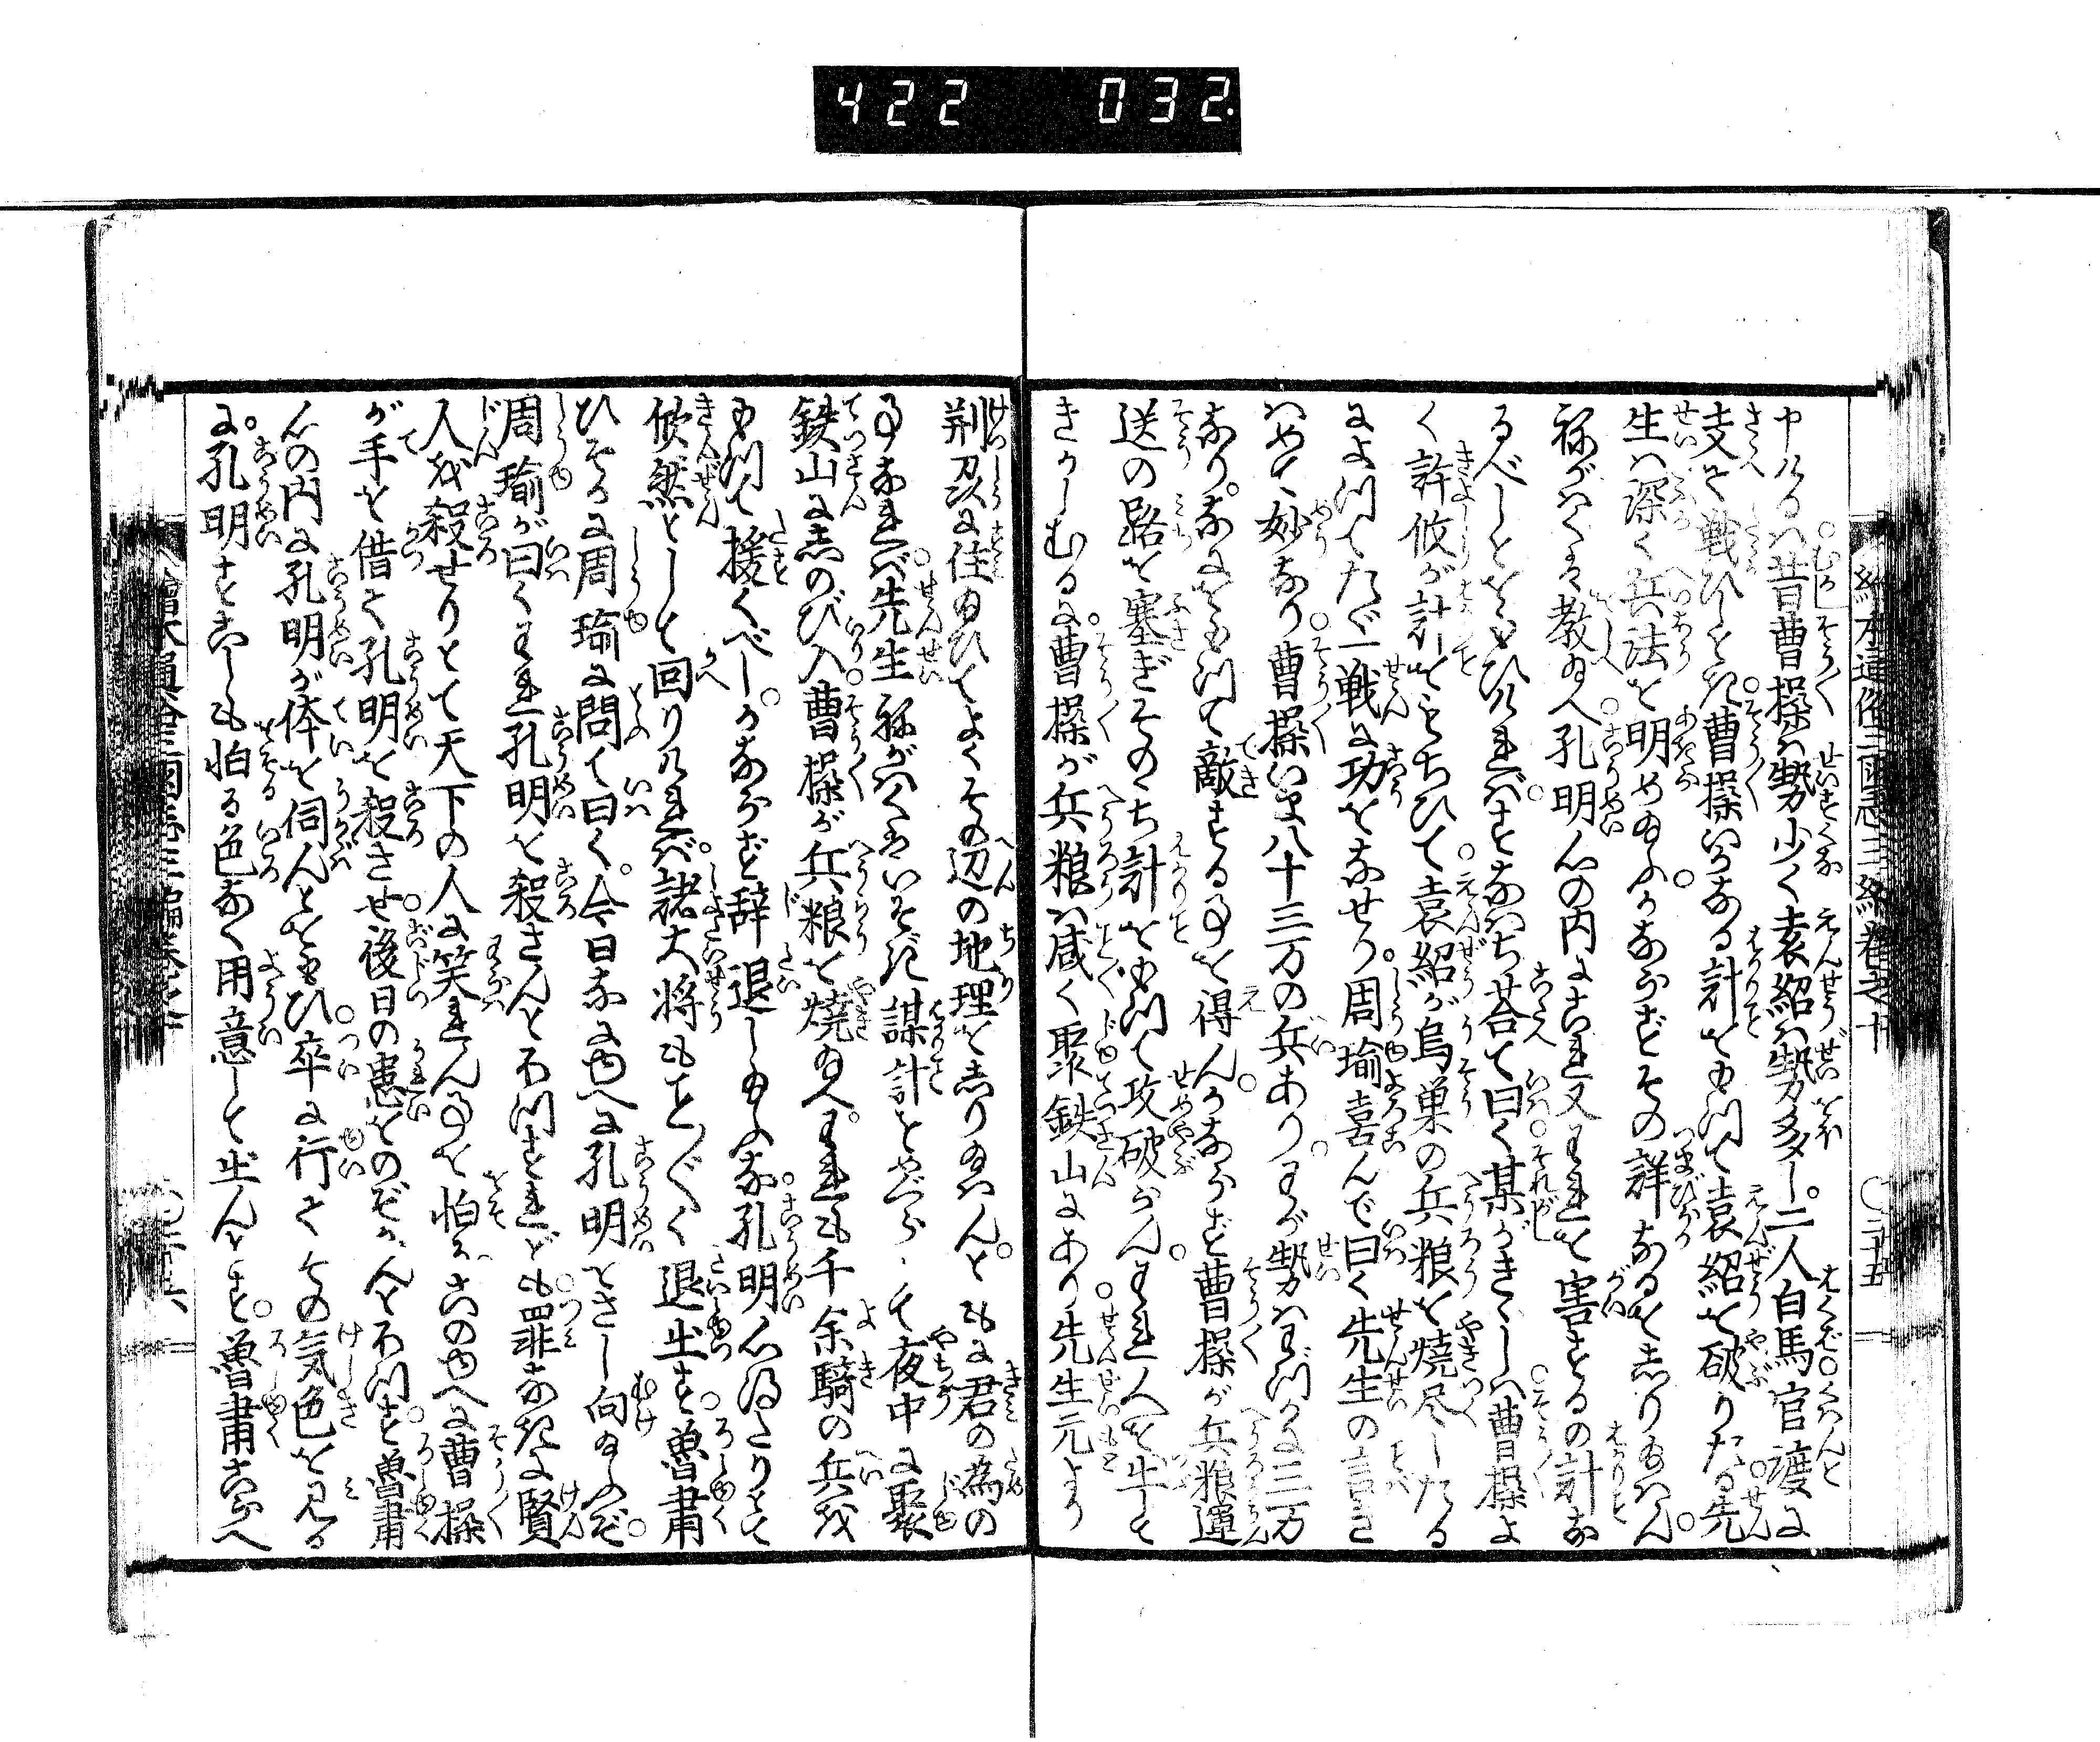 422 032
絵本通俗三国志三編巻之十 ○三十五
申けるは昔曹操は勢少く袁紹は勢多し。二人白馬官渡に
支て戦ひしとき曹操いかなる計をもつて袁紹を破りたる先
生は深く兵法を明め給ふ。かならずその詳なるをしり給はん。
ねがはくは教給へ孔明心の内にこれ又われを害するの計な
るべしとをもひければ。すなはち荅て曰く某がきゝしは曹操よ
く許攸が計をもちひて袁紹が烏巣の兵粮を焼尽したる
によつてたゞ一戦に功をなせり周瑜喜んで曰く先生の言き
はめて妙なり曹操いま八十三万の兵あり。わが勢はわづかに三万
なり。なにをもつて敵する事を得ん。かならず曹操が兵粮運
送の路を塞ぎそのゝち計をもつて攻破らん。われ人を
きかしむるに。曹操が兵粮は咸く聚鉄山にあり先生元より
荆℃に住給ひてよくその辺の地理をしり給はん。ともに君の為の
事なれば先生ねがはくはいそぎ謀計をめぐらして夜中に聚
鉄山にしのび入曹操が兵粮を焼給へ。われも千余騎の兵を
もつて援くべし。かならず辞退し給ふな孔明心得たりとて
忻然として回りければ。諸大将もことごとく退出す魯粛
ひそかに周瑜に問て曰く。今日なにゆへに孔明をさし向給ふぞ。
周瑜が曰くわれ孔明を殺さんと欲すれども罪なきに賢
人を殺せりとて天下の人に笑れん事を怕る。このゆへに曹操
が手を借て孔明を殺させ後日の患をのぞかんと欲す魯粛
心の内に孔明が体を伺んとをもひ卒に行てその気色を見る
に。孔明すこしも怕る色なく用意して出んとす。魯粛こらへ
絵本通俗三国志三編巻之十 ○三十六